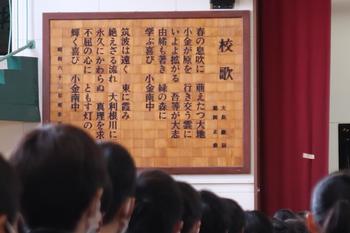 校歌
春の息吹に 萠えたつ大地
小金が原を 行き交う雲に
いよよ拡がる 吾等が大志
由緒も著き 緑の森に
学ぶ喜び 小金南中
筑波は遠く 東に霞み
絶えざる流れ 大利根川に
永久にかわらぬ 真理を求
不屈の心に ともす灯の
輝く喜び 小金南中